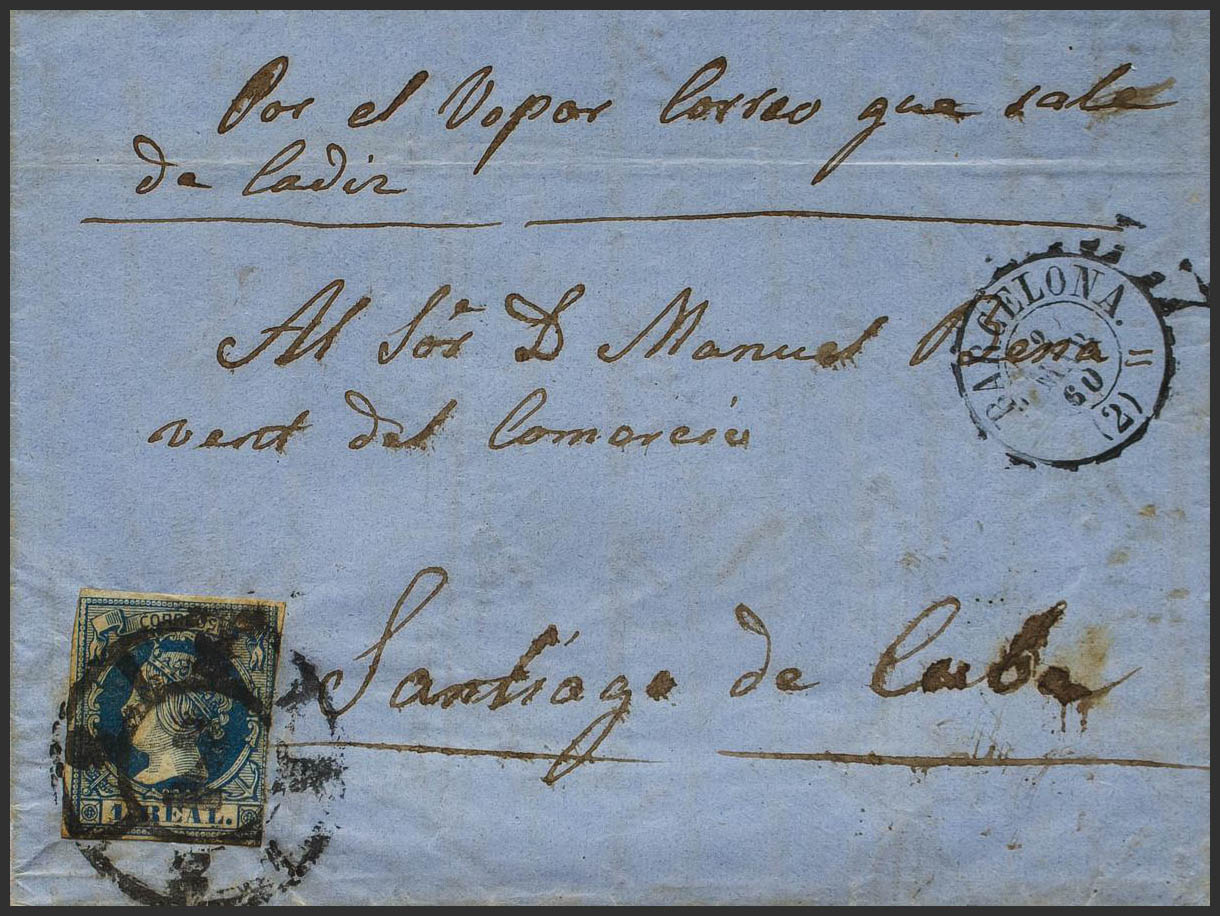 Por el Vapor Correo que sale
de Cadiz
Al Sor D Manuel Bena
vent del Comercio
BARCELONA.
60
(2)
Santiago de Cuba
CORREOS
1 REAL.